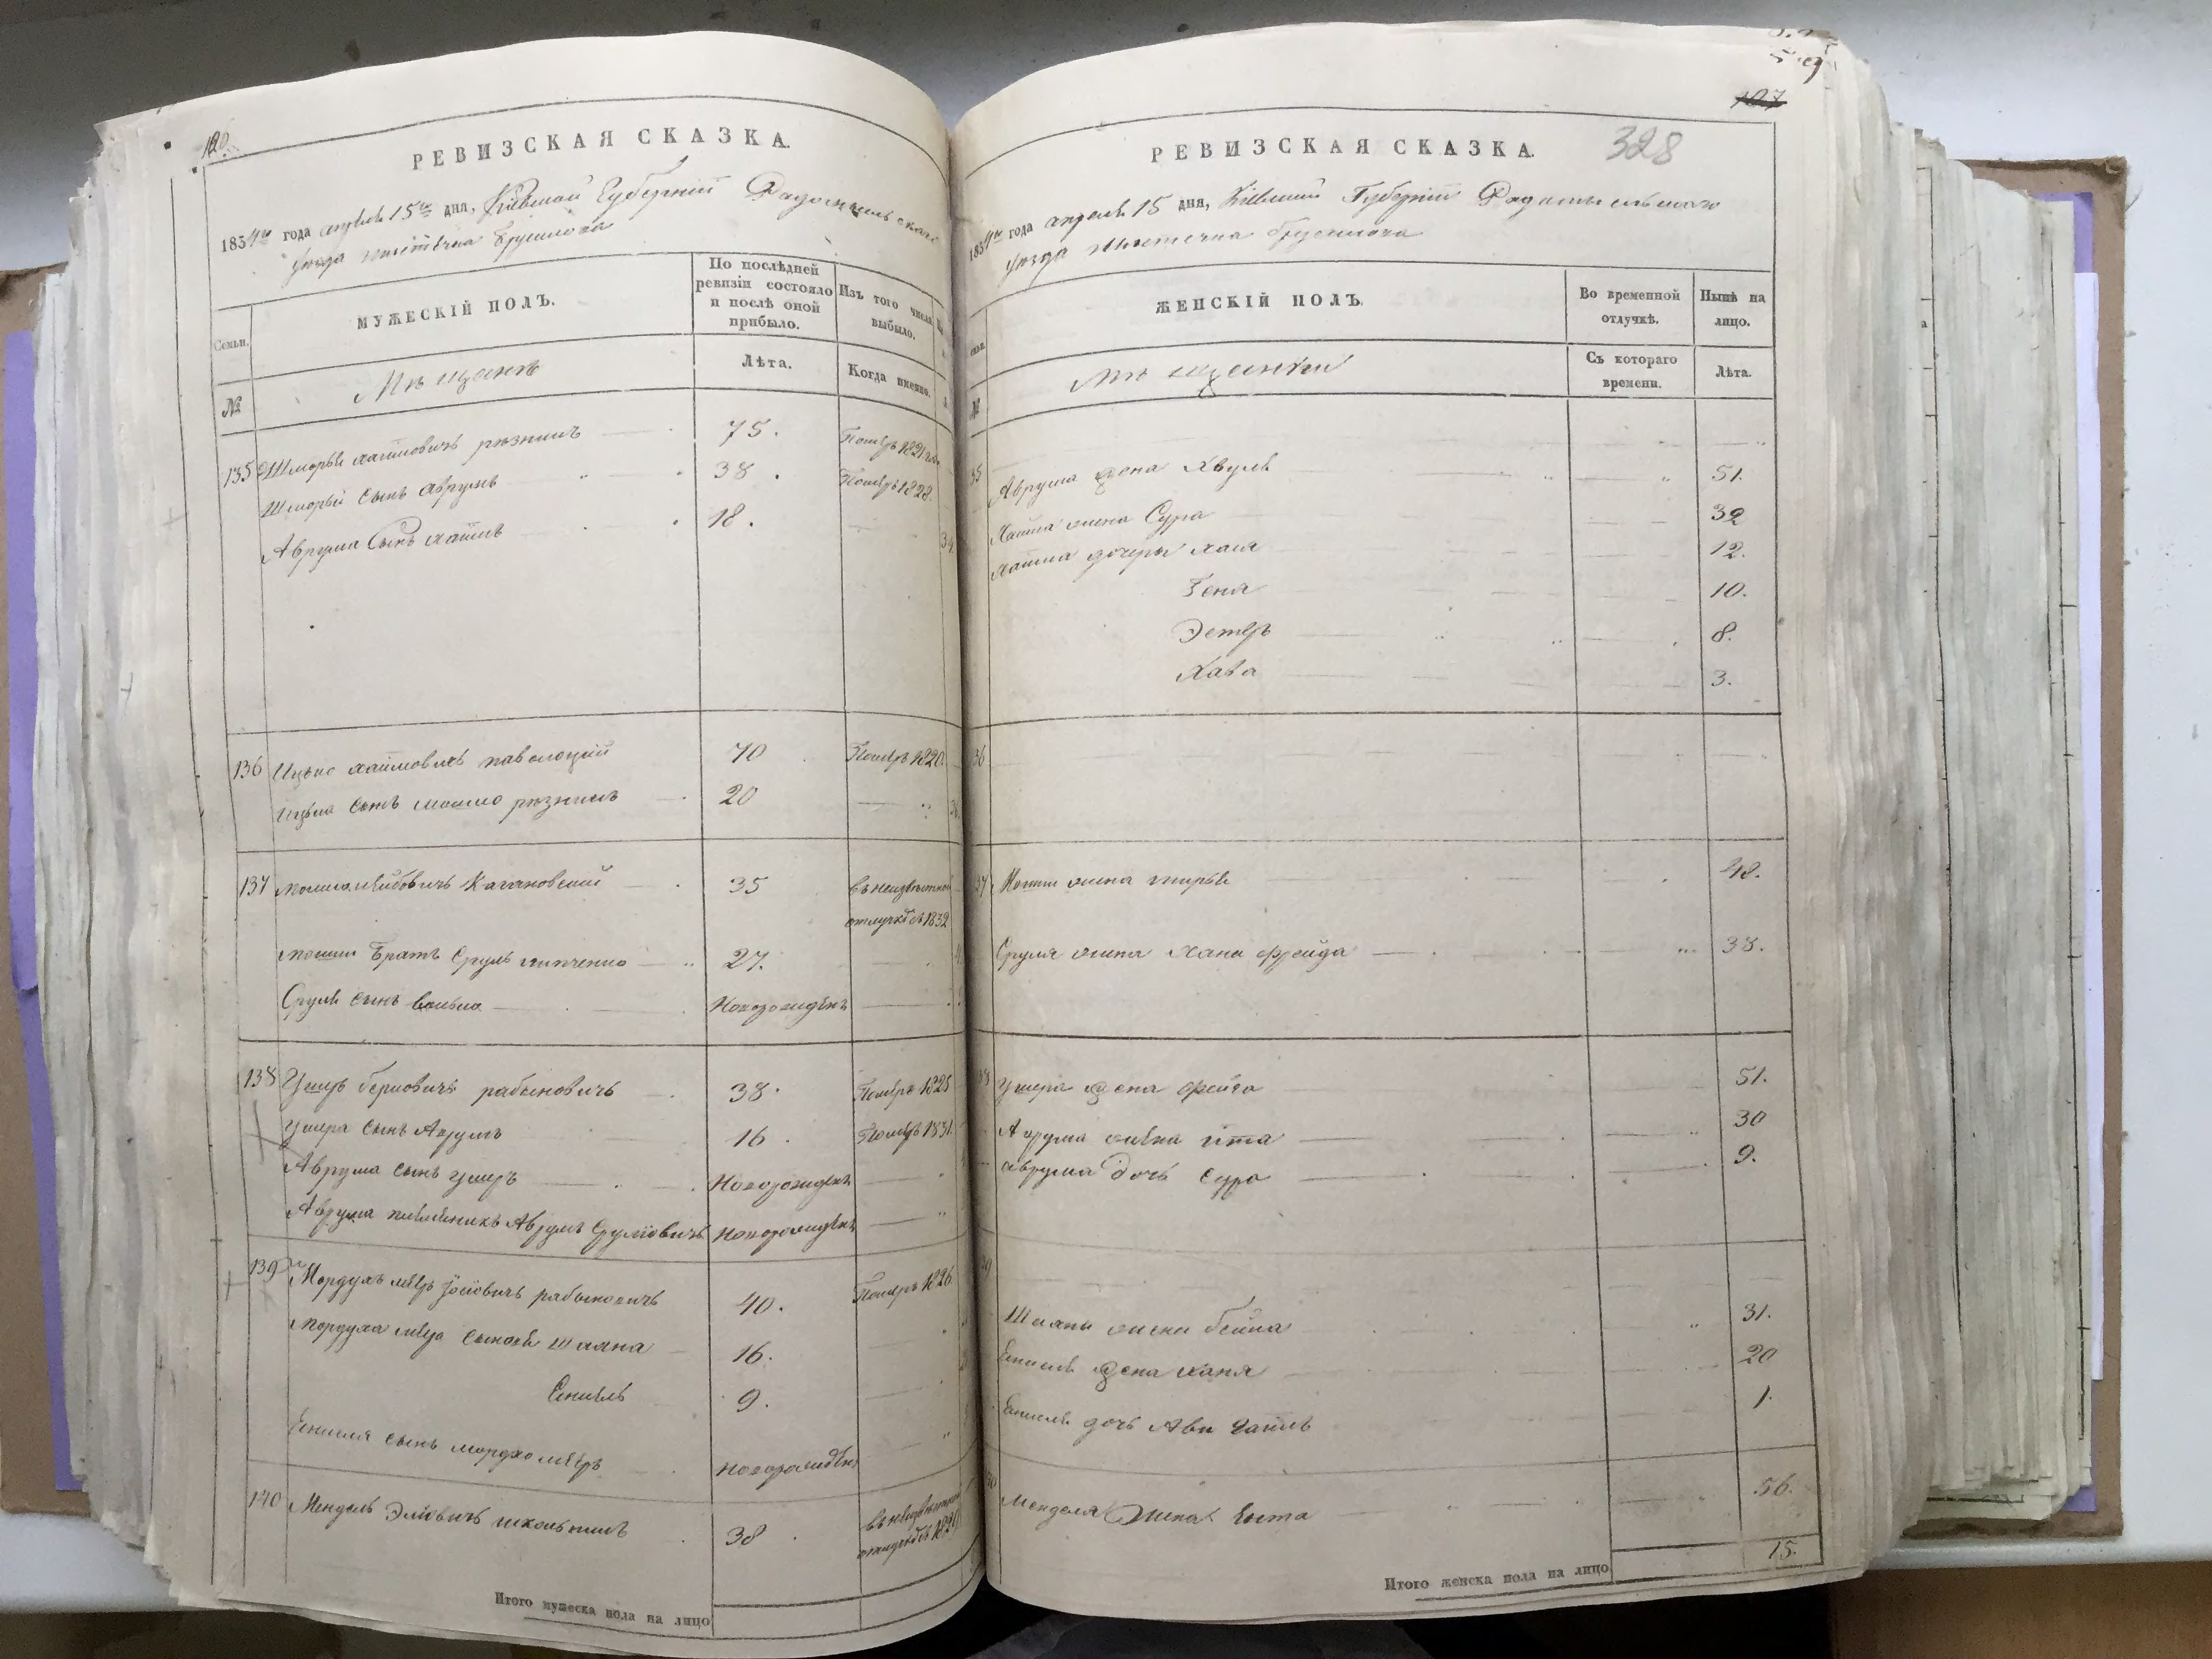 120.
РЕВИЗСКАЯ СКАЗКА.
1834го года апреля 15го дня, Кіевской Губерніи Радомысльскаго
уезда местечка Брусилова
Семьи.
МУЖЕСКІЙ ПОЛЪ.
По послѣдней ревизіи состояло и послѣ оной прибыло.
Изъ того числа выбыло.
№
Мѣщане
Лѣта.
Когда именно.
135 Шморъ Хаимовичъ резникъ 75. Померъ 1821
Шморы сынъ Аврумъ 38. Померъ 1828.
Аврума Сынъ Хаимъ 18.
136 Ицько Хаимовичъ паволоцкій 70 Померъ 1820
Ицька сынъ Мошко резникъ 20
137 Мошко Лейбовичъ Качановскій 35 въ неизвестной
отлучке съ 1832
Мошки Братъ Сруль 27.
Сруля сынъ Волько Новорожденъ
138 Ушеръ берковичъ рабиновичъ 38. Померъ 1825
Ушера сынъ Аврумъ 16. Померъ 1831.
Аврума сынъ Ушеръ Новорожденъ
Аврума племеникъ Аврумъ Сруліовичъ Новорожденъ
139 Мордухъ мееръ Іосіовичъ рабиновичъ 40. Померъ 1826
Мордуха меера сыновья Шаяна 16.
Енкель 9.
Енкеля сынъ мордхо мееръ новорожденъ
140 Мендель Эліовичъ школьникъ 38 въ неизвестной
отлучке съ 1829
Итого мужеска пола на лицо
107
328
РЕВИЗСКАЯ СКАЗКА.
1834го года апреля 15 дня, Кіевской Губерніи Радомысльскаго
уезда Местечка брусилова
№
ЖЕНСКІЙ ПОЛЪ.
Во временной отлучкѣ.
Нынѣ на лицо.
Мѣщанки
Съ котораго времени.
Лѣта.
35 Аврума жена Хвуля 51.
Хаима жена Сура 32
Хаима дочеры Хая 12.
Геня 10.
Эстеръ 8.
Хава 3.
36
37 Мошки жена 48.
Сруля жена Хана фрейда 38.
38 Ушера жена Фейга 51.
Аврума жена Гита 30
Аврума дочь Сура 9.
39
Шаяны жена бейла 31.
Енкеля жена Ханя 20
Енкеля дочь 1.
40 Менделя жена 56.
15.
Итого женска пола на лицо